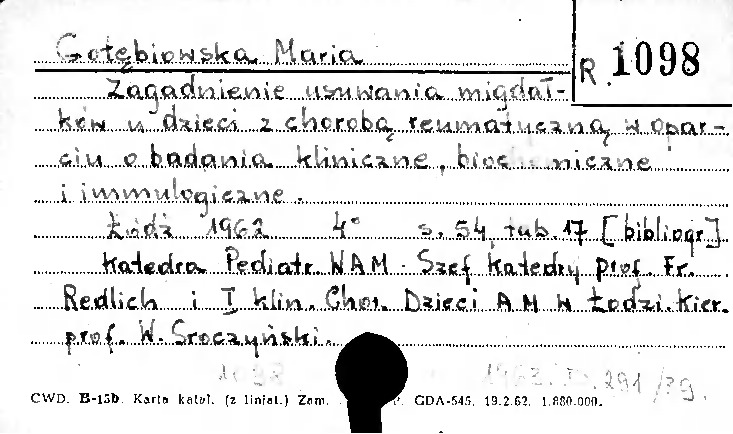 Gołębiowska Maria
R. 1098
Zagadnienie usuwania migdał-
ków u dzieci z chorobą reumatyczną w opar-
ciu o badania kliniczne, biochemiczne
i immulogiczne.
Łódź 1962 4° s. 54, tab. 17 [bibliogr]
Katedra Pediatr. WAM. Szef Katedry prof. Fr.
Redlich i I klin. Chor. Dzieci AM w Łodzi. Kier.
prof. W. Sroczyński.
1098 291/79.
CWD. B-15b. Karta katal. (z liniat.) Zam. GDA-545. 19.2.62. 1.880.000.